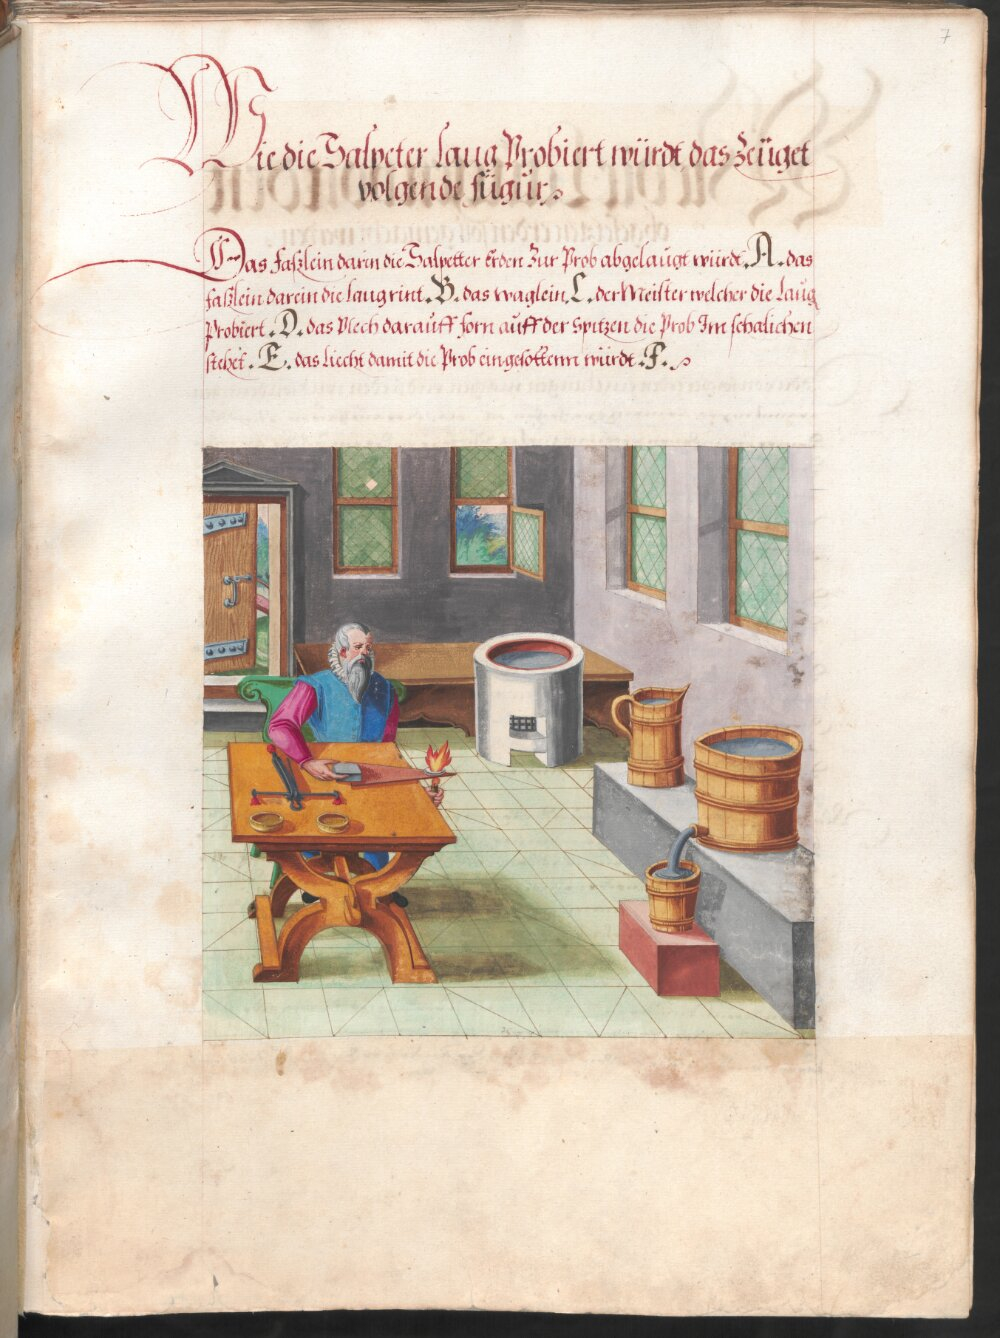 7
Wie die Salpeter Laug Probiert würdt das Zeüget
volgende figur
Das faßlein darin die Salpetter Erden Zur Prob abgelaugt würdt .A. das
faßlein darein die Laug rint .B. das waglein .C. der Meister welcher die Laug
Probiert .D. das Plech darauff forn auff der Spitzen die Prob Im schalichen
stehet .E. das Liecht damit die Prob eingesottenn würdt .F.